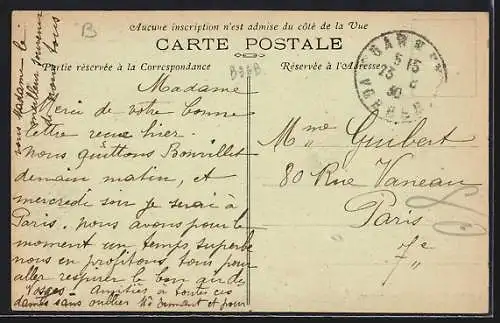 Aucune inscription n'est admise du côté de la Vue
CARTE POSTALE
Partie réservée à la Correspondance
Réservée à l'Adresse
B
B96B
Madame
Merci de votre bonne
lettre reçue hier.
Nous quittons Bonvillet
demain matin, et
mercredi soir je serai à
Paris. Nous avons pour le
moment un temps superbe
nous en profitons tous pour
aller respirer le bon air des
Vosges – Amitiés à toutes ces
dames sans oublier et pour
vous Madame le
meilleur souvenir
de nous tous
Mme Guibert
80 Rue Vaneau
Paris
7e